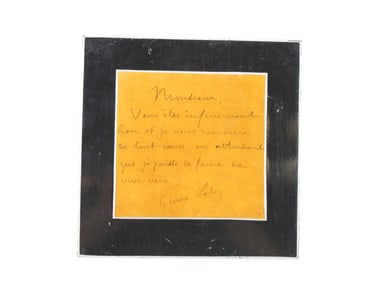 Monsieur,
Vous êtes infiniment
bon et je vous remercie
de tout cœur, en attendant
que je puisse le faire de
vive voix
Pierre Loti